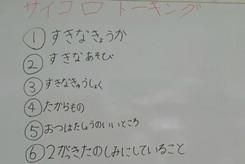 サイコロトーキング
① すきなきょうか
② すきなあそび
③ すきなきゅうしょく
④ たからもの
⑤ おつはたしょうのいいところ
⑥ 2がっきたのしみにしていること